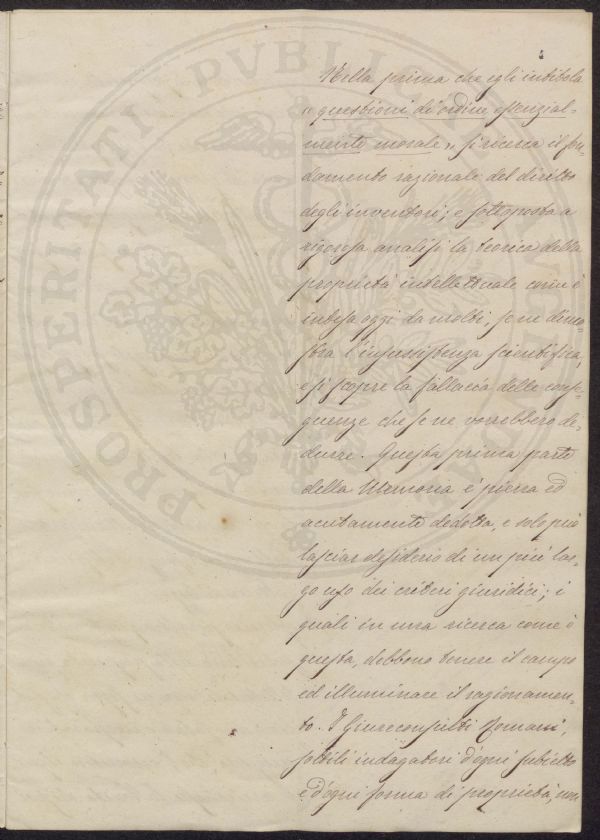 Nella prima che egli intitola
« questioni di ordine essenzial-
mente morale », si ricerca il fon-
damento razionale del diritto
degli inventori; e sottoposta a
rigorosa analisi la teorica della
proprietà intellettuale come è
intesa oggi da molti, se ne dimo-
stra l'insussistenza scientifica,
e si scopre la fallacia delle conse-
guenze che se ne vorrebbero de-
durre. Questa prima parte
della Memoria è piena ed
acutamente dedotta, e solo può
lasciar desiderio di un più lar-
go uso dei criteri giuridici; i
quali in una ricerca come è
questa, debbono tenere il campo
ed illuminare il ragionamen-
to. I Giureconsulti Romani,
sottili indagatori d'ogni subietto
e d'ogni forma di proprietà, non
PROSPERITATI PVBLICAE